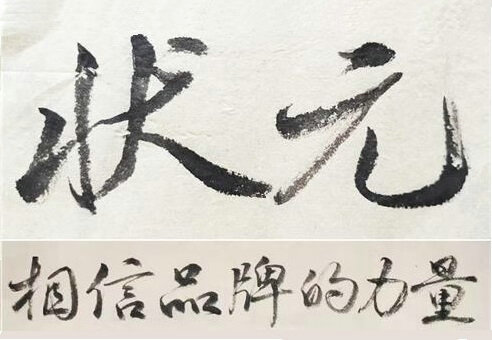 状元
相信品牌的力量